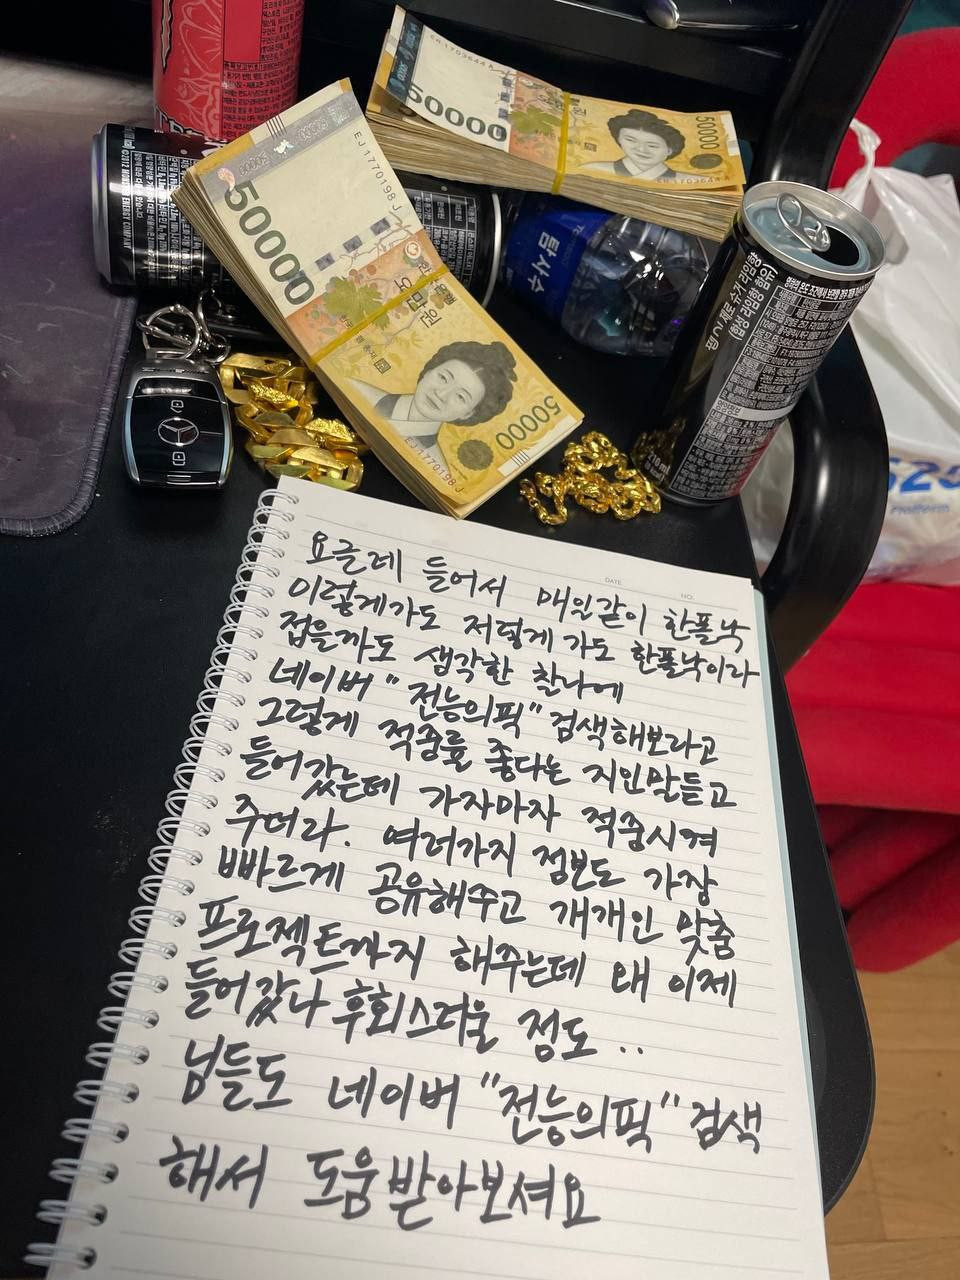 50000
EJ1770198J
오만원
50000
50000
50000
탐사수
펩시 제로 슈거 라임향
(합성 라임향 함유)
DATE
NO.
요근레 들어서 매일같이 한폴낙
이렇게가도 저렇게 가도 한폴낙이라
접을까도 생각한 찰나에
네이버 "전능의픽" 검색해보라고
그렇게 적중률 좋다는 지인말듣고
들어갔는데 가자마자 적중시켜
주더라. 여러가지 정보도 가장
빠르게 공유해주고 개개인 맞춤
프로젝트까지 해주는데 왜 이제
들어갔나 후회스러울 정도..
님들도 네이버 "전능의픽" 검색
해서 도움받아보셔요